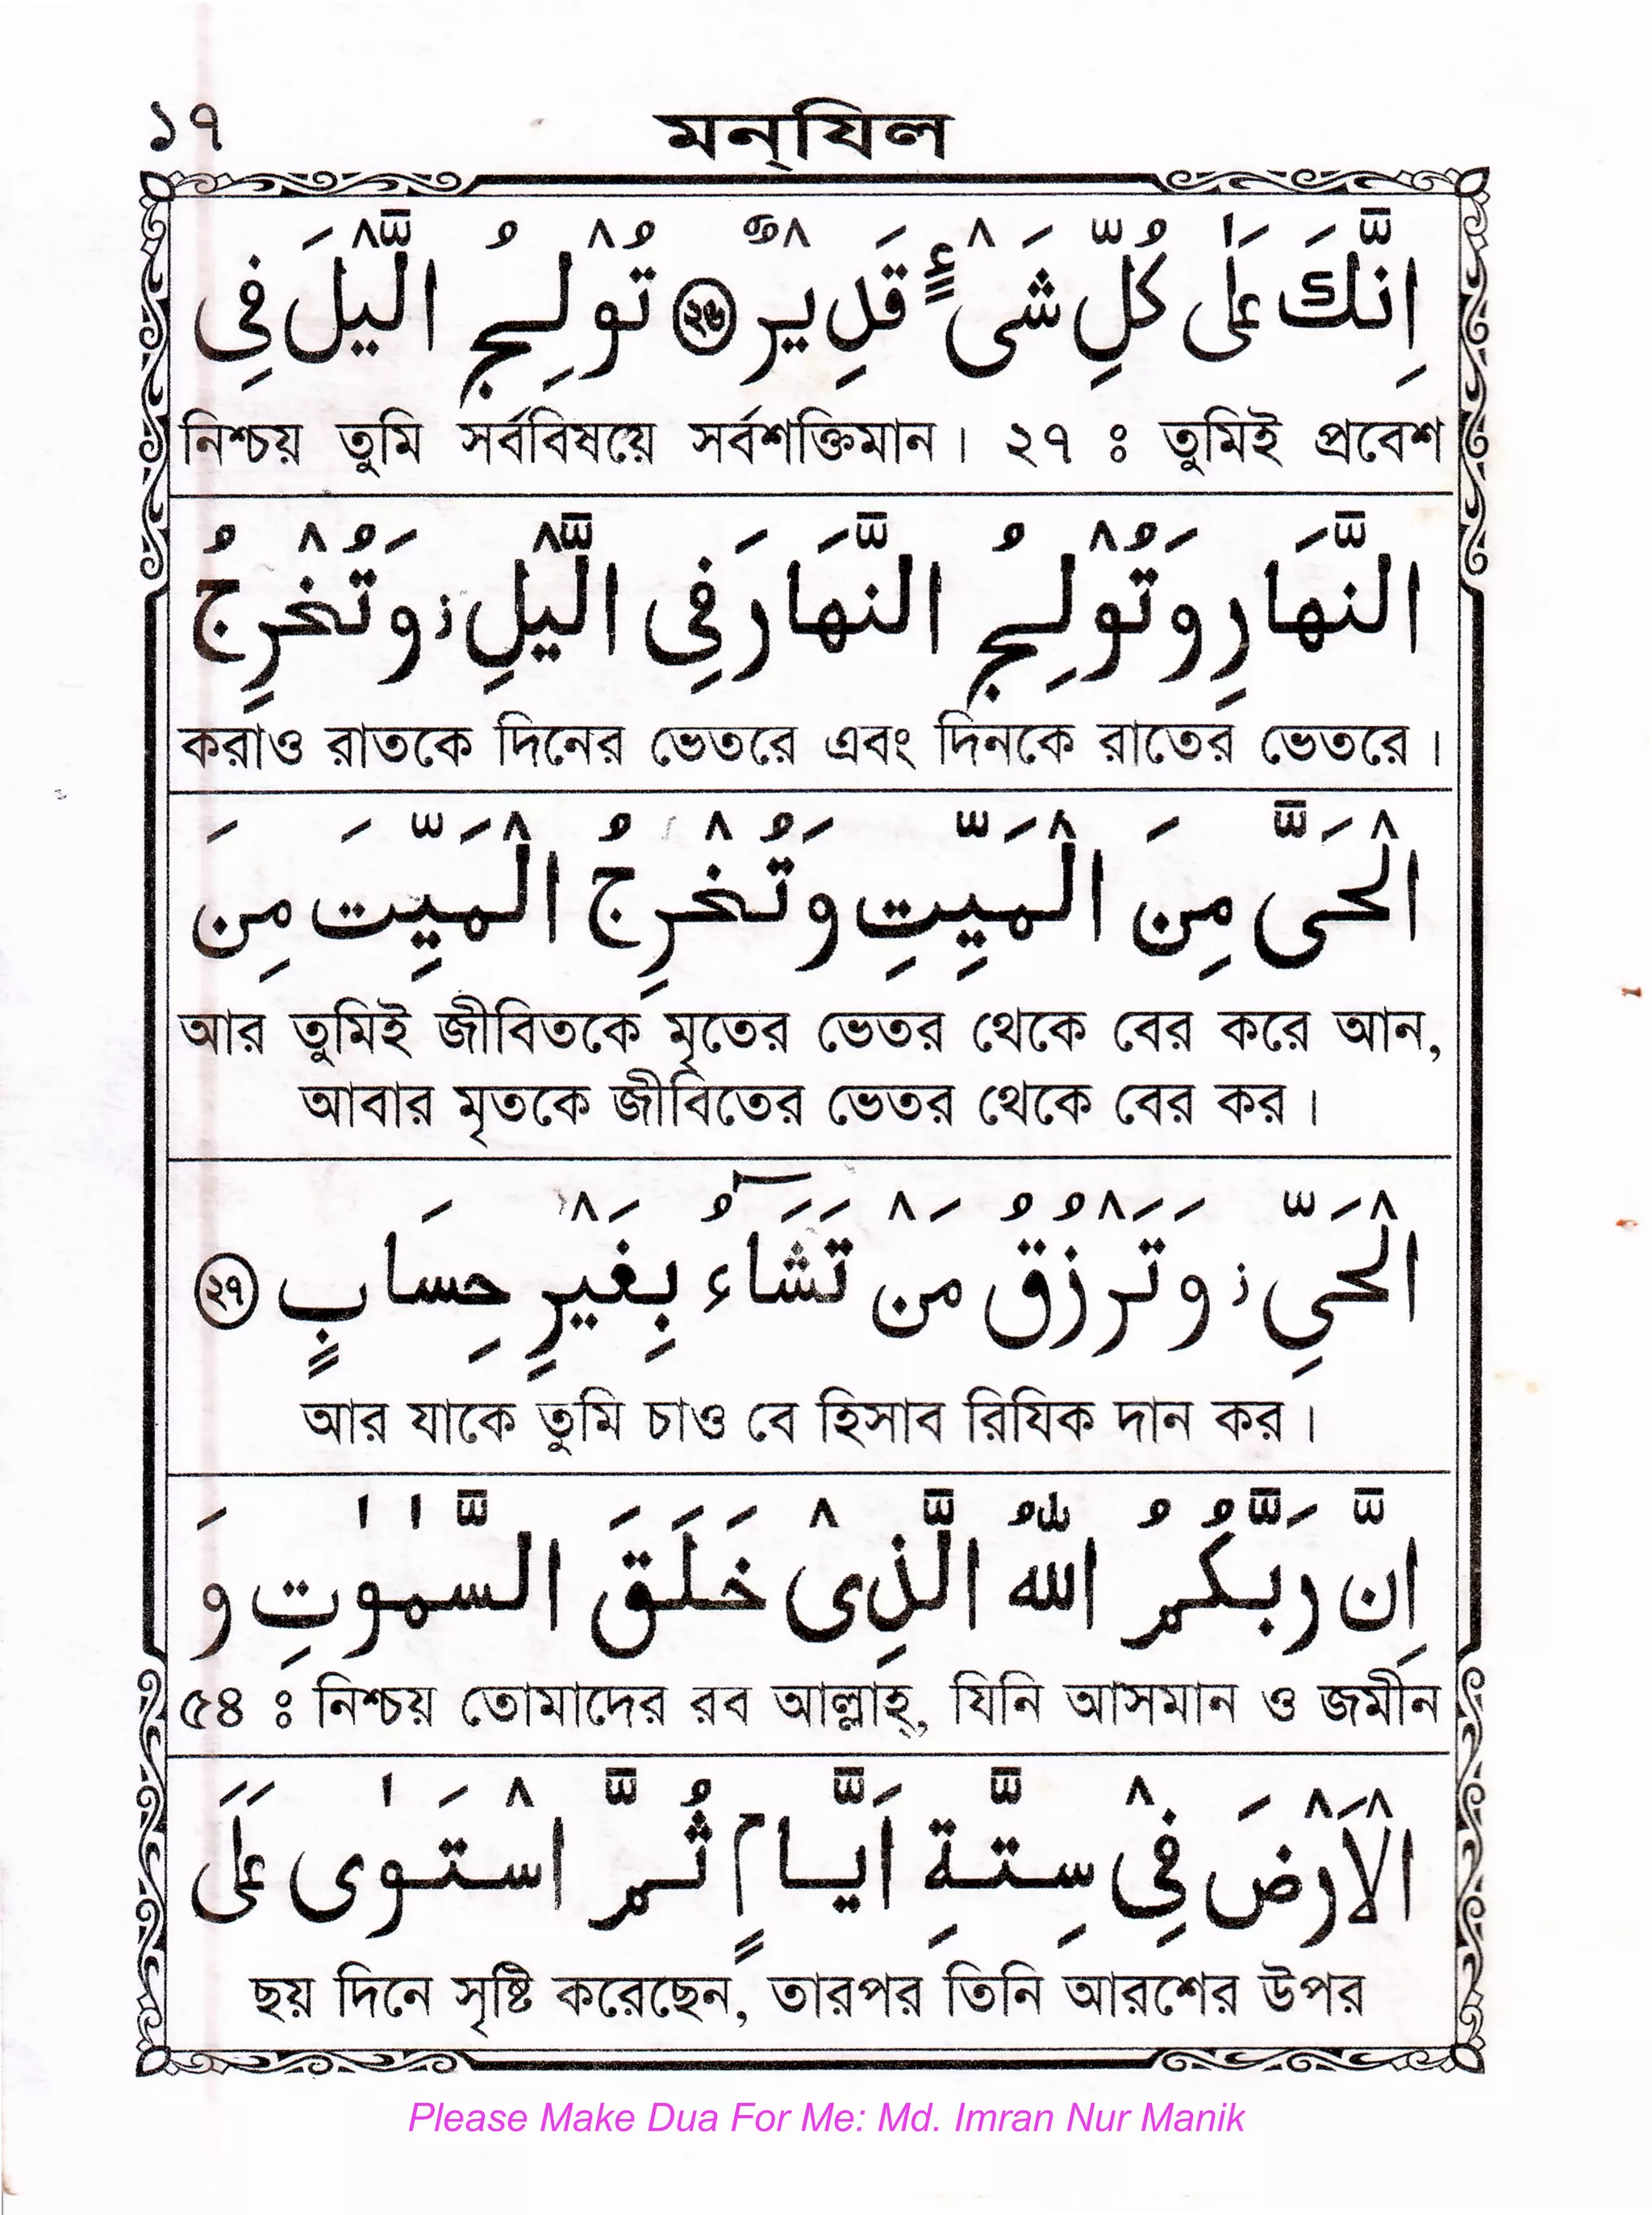 ১৭
মন্‌যিল
اِنَّكَ عَلٰى كُلِّ شَىْءٍ قَدِيْرٌ ﴿২৬﴾ تُوْلِجُ الَّيْلَ فِى
নিশ্চয় তুমি সর্ববিষয়ে সর্বশক্তিমান। ২৭ ঃ তুমিই প্রবেশ
النَّهَارِ وَتُوْلِجُ النَّهَارَ فِى الَّيْلِ ز وَتُخْرِجُ
করাও রাতকে দিনের ভেতরে এবং দিনকে রাতের ভেতরে।
الْحَىَّ مِنَ الْمَيِّتِ وَتُخْرِجُ الْمَيِّتَ مِنَ
আর তুমিই জীবিতকে মৃতের ভেতর থেকে বের করে আন,
আবার মৃতকে জীবিতের ভেতর থেকে বের কর।
الْحَىِّ ز وَتَرْزُقُ مَنْ تَشَآءُ بِغَيْرِ حِسَابٍ ﴿২৭﴾
আর যাকে তুমি চাও বে হিসাব রিযিক দান কর।
اِنَّ رَبَّكُمُ اللّٰهُ الَّذِىْ خَلَقَ السَّمٰوٰتِ وَ
৫৪ ঃ নিশ্চয় তোমাদের রব আল্লাহ্, যিনি আসমান ও জমীন
الْاَرْضَ فِىْ سِتَّةِ اَيَّامٍ ثُمَّ اسْتَوٰى عَلَى
ছয় দিনে সৃষ্টি করেছেন, তারপর তিনি আরশের উপর
Please Make Dua For Me: Md. Imran Nur Manik